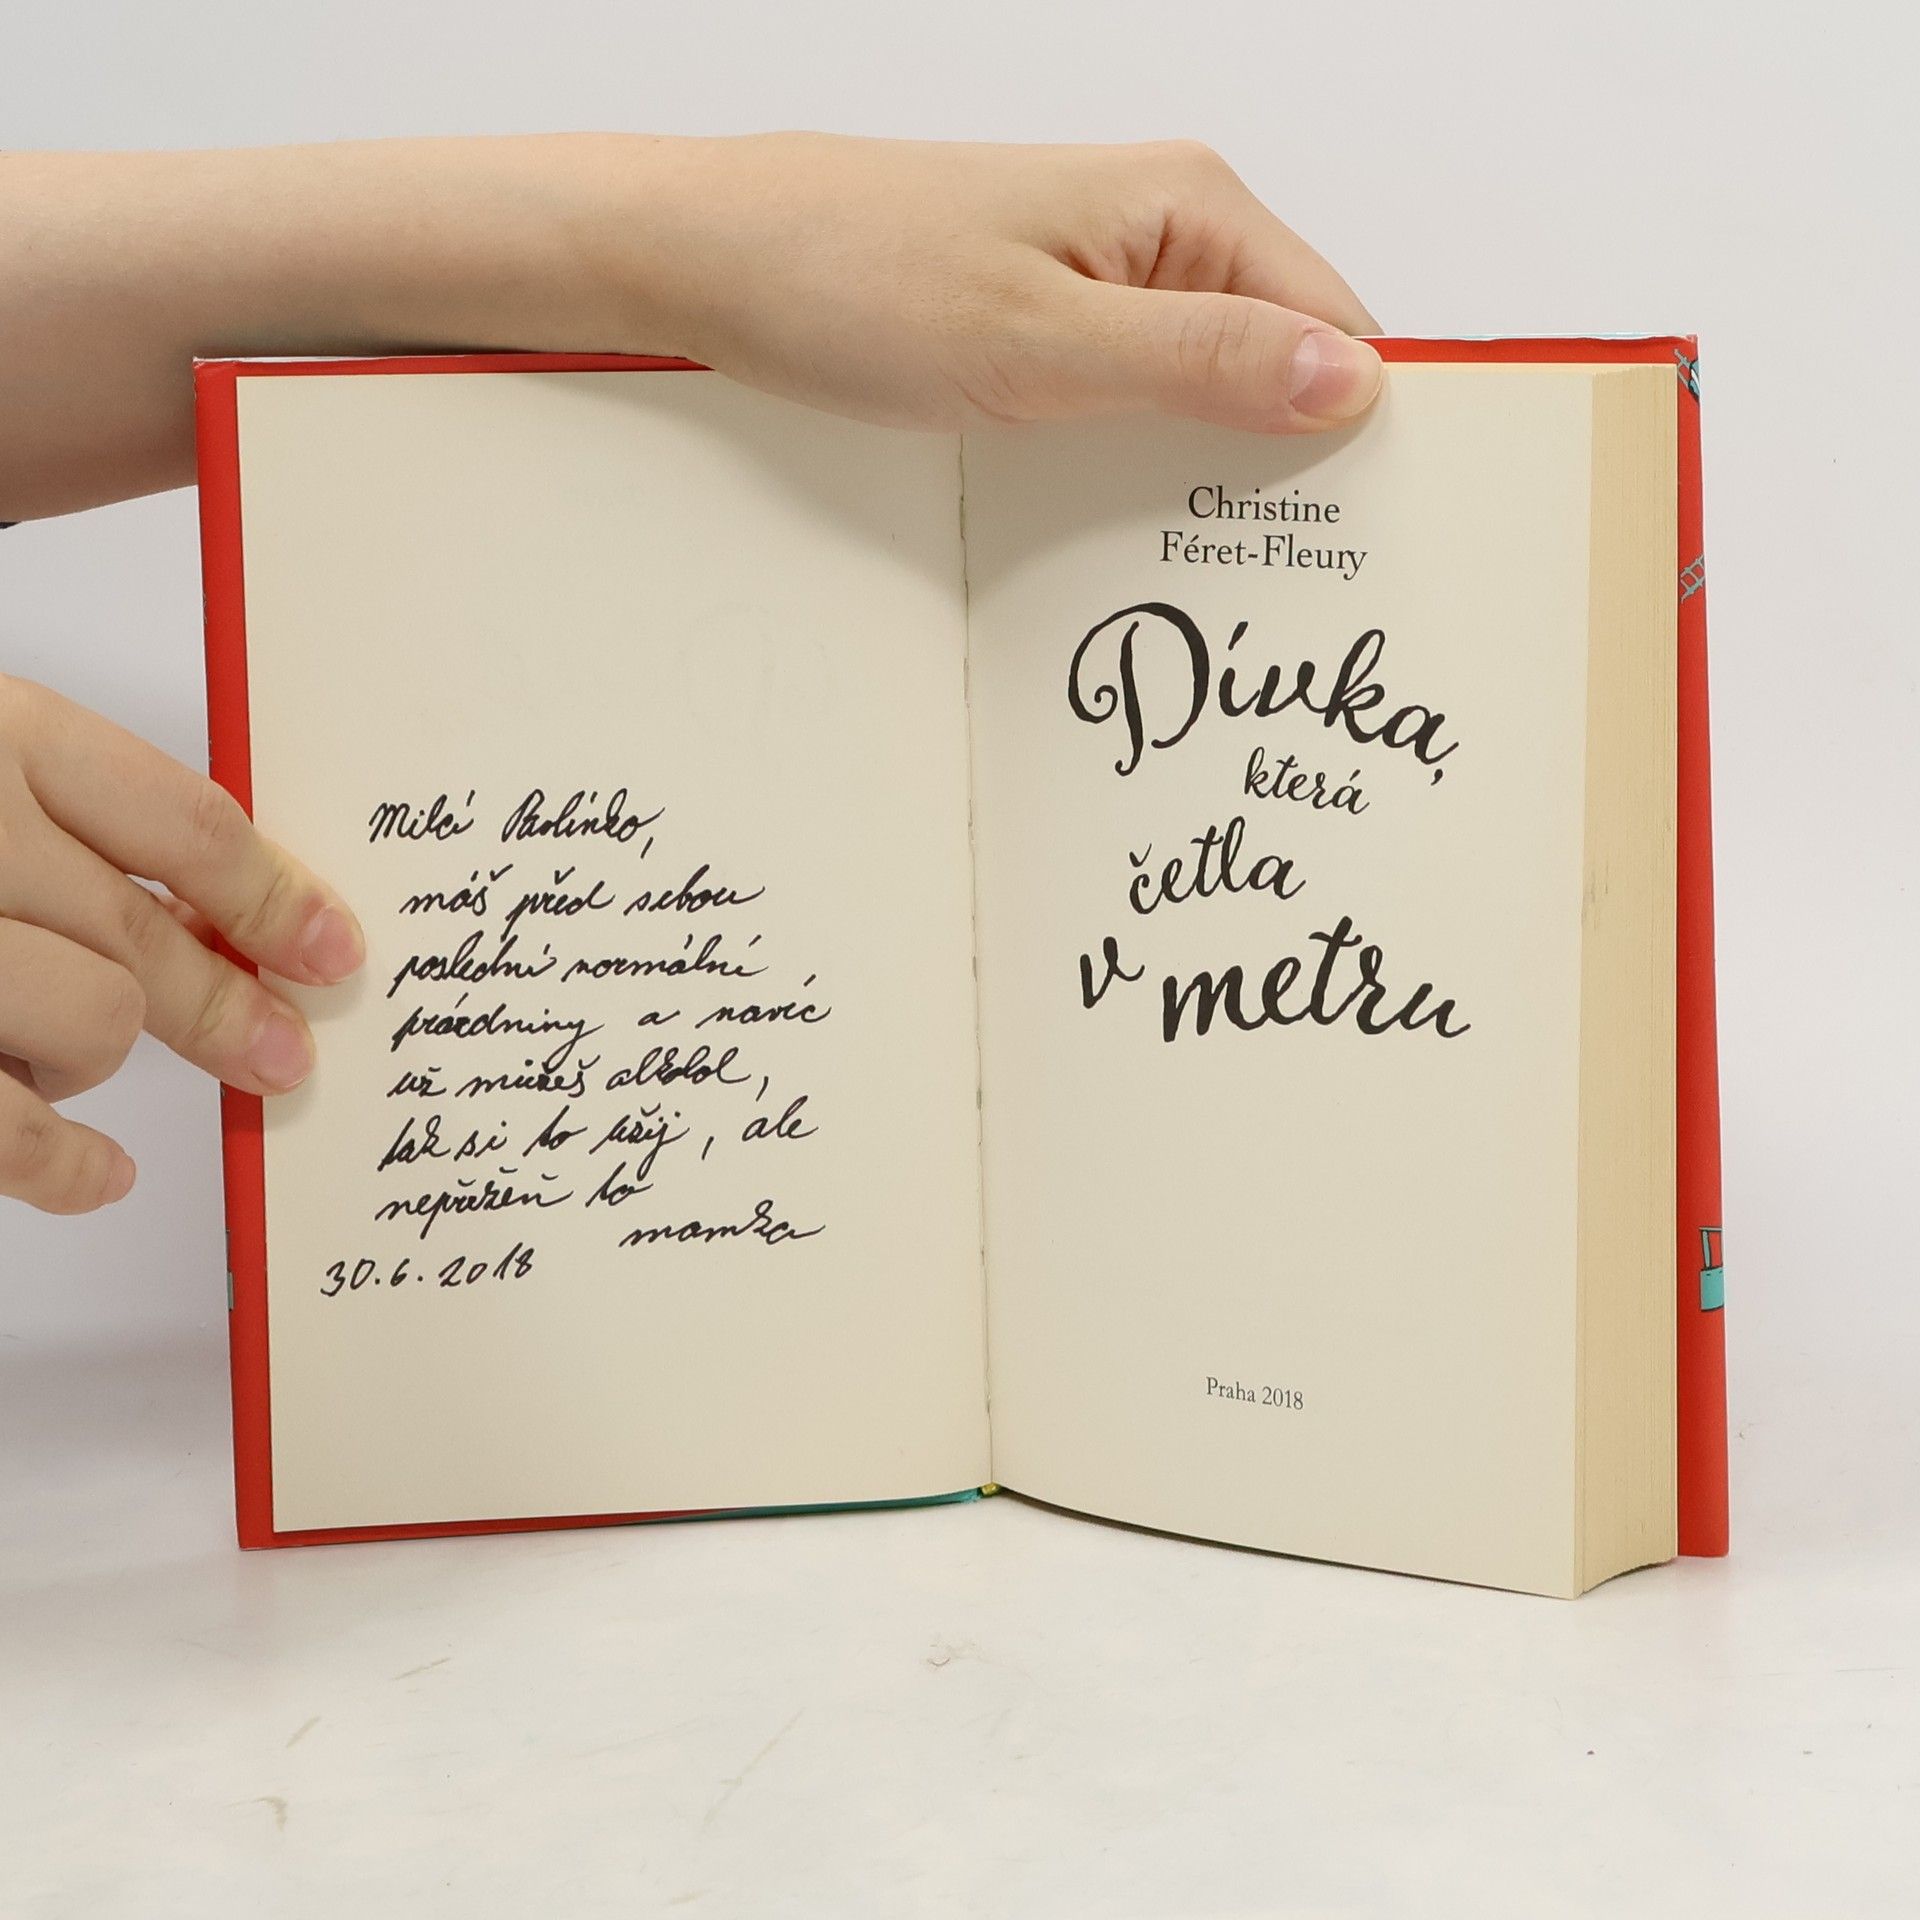 Milá Pavlínko,
máš před sebou
poslední normální
prázdniny a navíc
už můžeš alkohol,
tak si to užij, ale
nepřežeň to
mamka
30.6.2018
Christine
Féret-Fleury
Dívka,
která
četla
v metru
Praha 2018